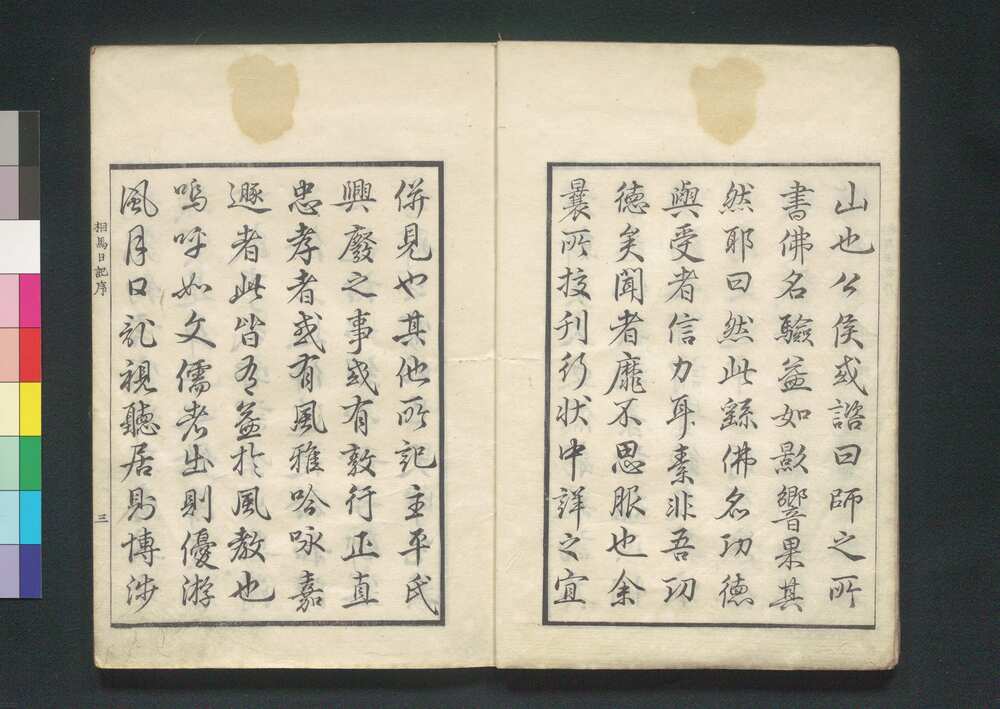 山也公侯或諮曰師之所
書佛名驗益如影響果其
然耶曰然此繇佛名功德
與受者信力耳素非吾功
德矣聞者靡不思服也余
曩所挍刋行状中詳之宜
併見也其他所記主平氏
興廢之事或有敦行正直
忠孝者或有風雅吟咏嘉
遯者此皆有益於風教也
嗚呼如文儒者出則優游
風月日記視聽居則博涉
相馬日記序
三